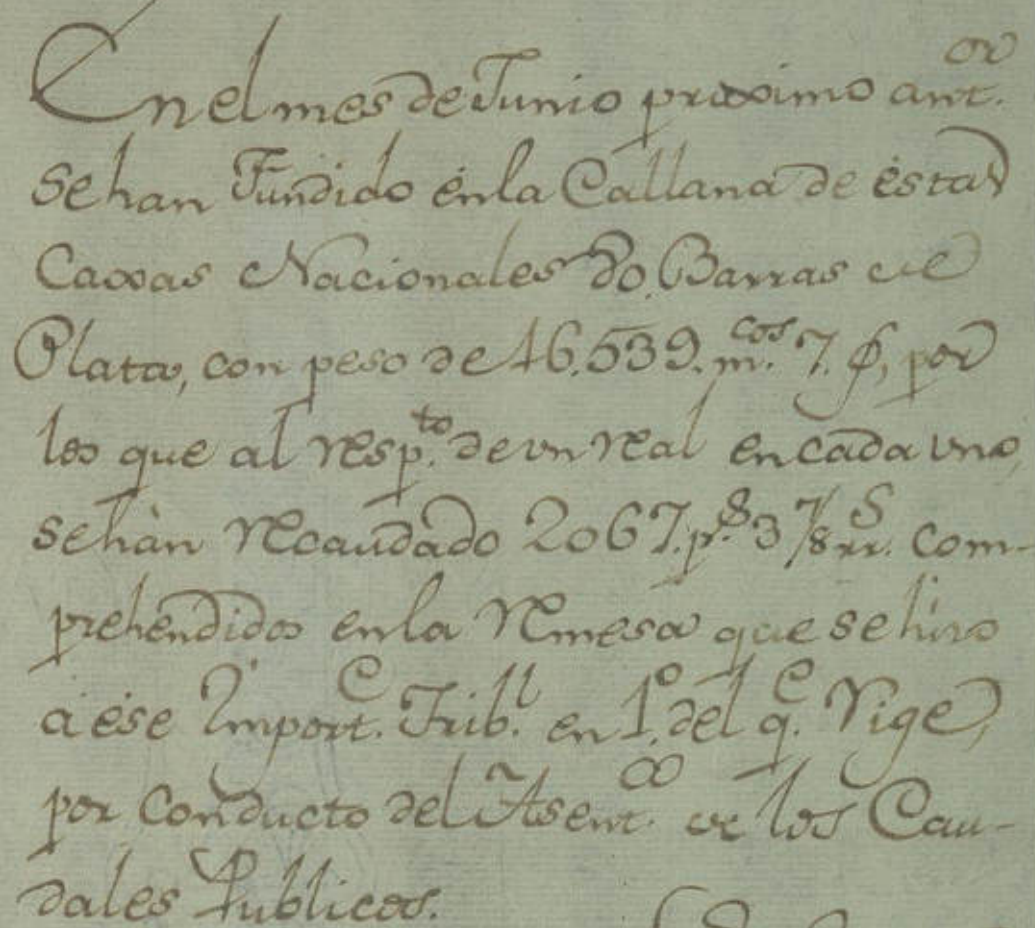 En el mes de Junio proximo ant.or
se han Fundido en la Callana de estas
Caxas Nacionales 80. Barras de
Plata, con peso de 16.539. m.cos 7. por
los que al resp.to de un real en cada uno,
se han recaudado 2067. p.s 3 7/8 rr.s com-
prehendidos en la Remesa que se hizo
a ese Import.e Trib.l en 1.o del q.e Vige,
por conducto del Asent.a de los Cau-
dales Publicos.